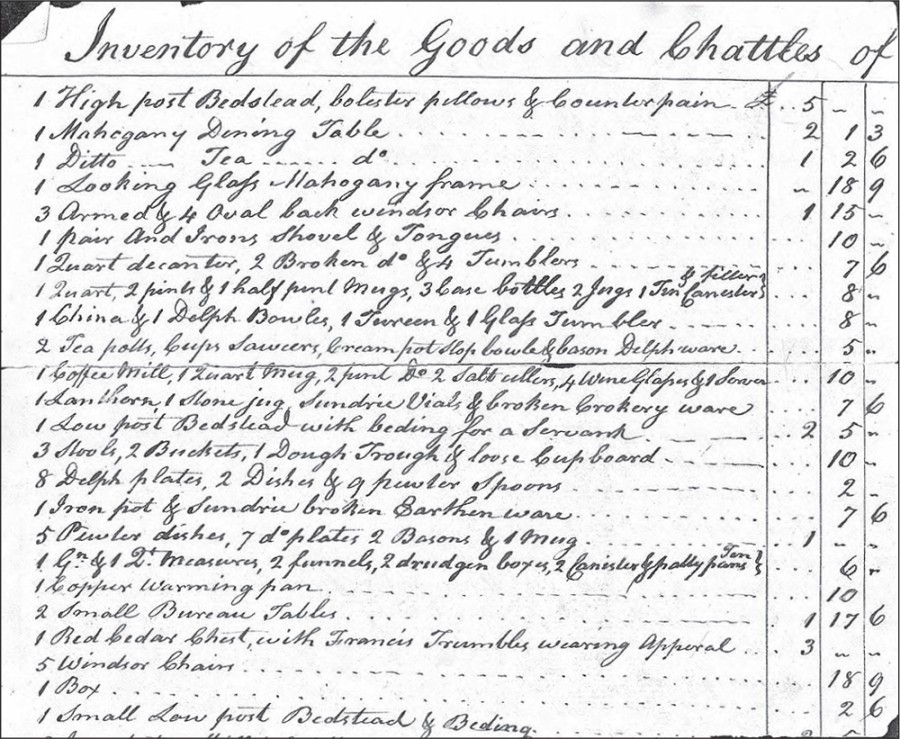 Inventory of the Goods and Chattles of
1 High post Bedstead, bolester pillows & Counterpain - £ .. 5 " "
1 Mahogany Dining Table 2 1 3
1 Ditto Tea do 1 2 6
1 Looking Glass Mahogany frame " 18 9
3 Armed & 4 Oval back windsor Chairs 1 15 "
1 pair And Irons Shovel & Tongues 10 "
1 Quart decanter, 2 Broken do & 4 Tumblers 7 6
1 Quart, 2 pints & 1 half pint Mugs, 3 Case bottles 2 Jugs 1 Tin Canester 8 "
1 China & 1 Delph Bowles, 1 Tureen & 1 Glass Tumbler 8 "
2 Tea potts, Cups Sawcers, Cream pot Slop bowle & bason Delph ware 5 "
1 Coffee Mill, 1 Quart Mug, 2 pint Do 2 Salt cellers, 4 Wine Glasses & 1 10 "
1 Lanthorn 1 Stone jug, Sundrie Vials & broken Crokery ware 7 6
1 Low post Bedstead with beding for a Servant 2 5 "
3 Stools, 2 Buckets, 1 Dough Trough & loose Cupboard 10 "
8 Delph plates, 2 Dishes & 9 pewter Spoons 2 "
1 Iron pot & Sundrie broken Earthen ware 7 6
5 Pewter dishes, 7 do plates 2 Basons & 1 Mug 1 " "
1 Gn & 1 Qt Measures, 2 funnels, 2 drudgen boxes, 2 Canester & patty pans Tin 6 "
1 Copper Warming pan 10
2 Small Bureau Tables 1 17 6
1 Red Cedar Chest, with Francis Trumbles wearing Apperal 3 " "
5 Windsor Chairs 18 9
1 Box 2 6
1 Small Low post Bedstead & Beding